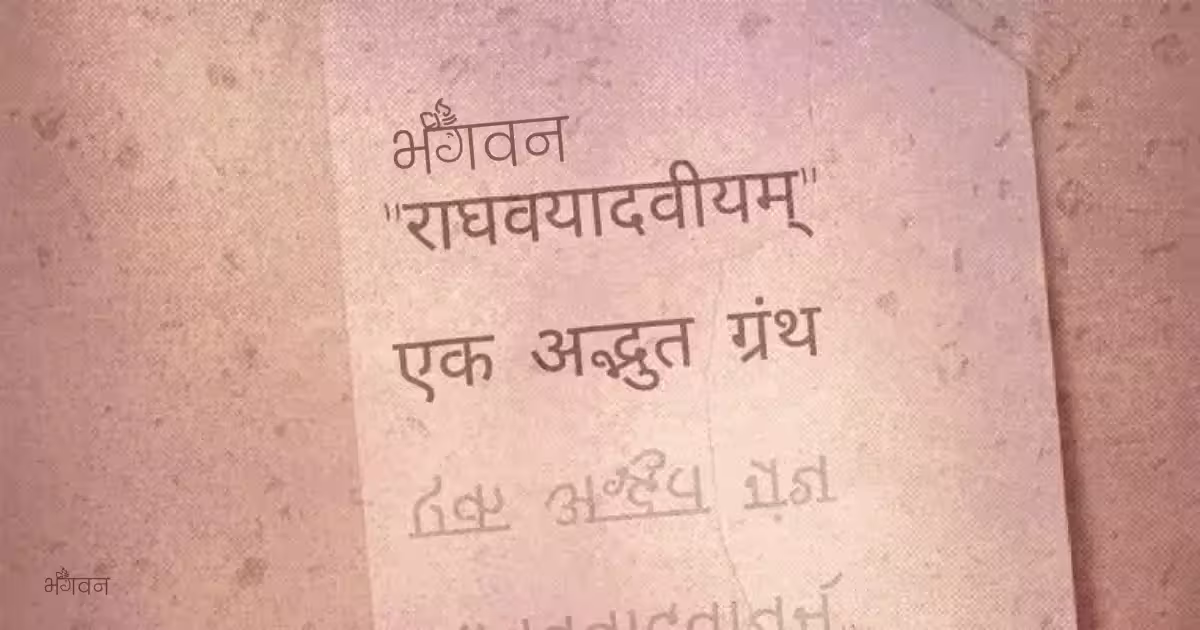 भगवन
"राघवयादवीयम्"
एक अद्भुत ग्रंथ
भगवन